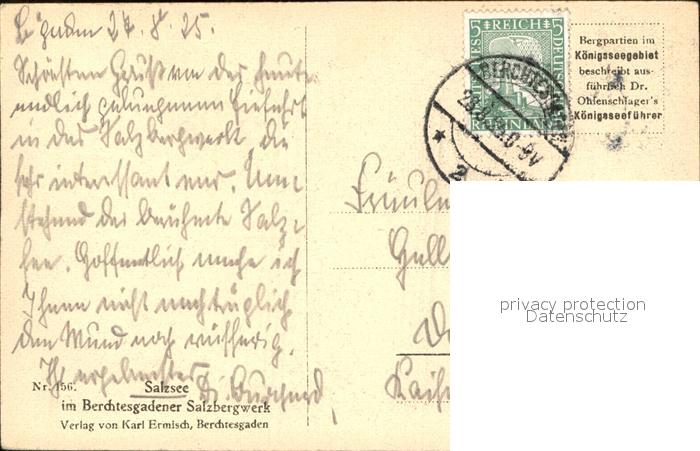 27. 8. 25.
Schönsten Gruß von der heute
endlich gelungenen Einfahrt
in das Salzbergwerk, die
sehr interessant war. Um-
stehend der berühmte Salz-
see. Hoffentlich mache ich
Ihnen nicht nachträglich
den Mund noch wässerig.
Ihr ergebenster
Nr. 156. Salzsee
im Berchtesgadener Salzbergwerk
Verlag von Karl Ermisch, Berchtesgaden
5 REICH 5
Bergpartien im
Königsseegebiet
beschreibt aus-
führlich Dr.
Ohlenschlager's
Königsseeführer
privacy protection
Datenschutz